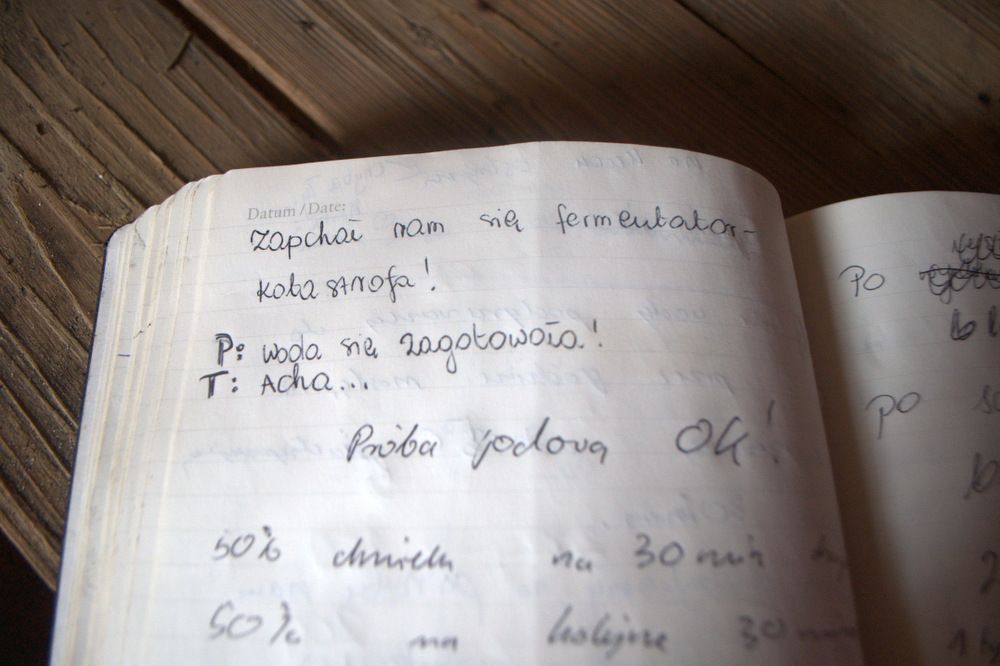 Datum / Date:
Zapchał nam się fermentator-
katastrofa!
P: woda się zagotowała!
T: Acha...
Próba jodova OK!
50% chmielu na 30 min
50% na kolejne 30 min
Po
po